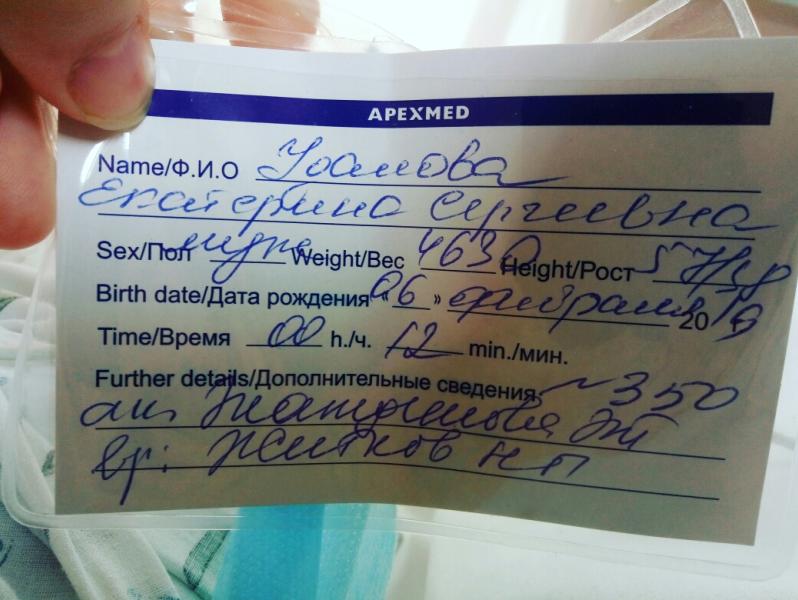 APEXMED
Name/Ф.И.О
Екатерина Сергеевна
Sex/Пол муж Weight/Вес 4630 Height/Рост 57
Birth date/Дата рождения « 06 » февраля 20 19
Time/Время 00 h./ч. 12 min./мин.
Further details/Дополнительные сведения: ~350
ак.
вр: Житков НП